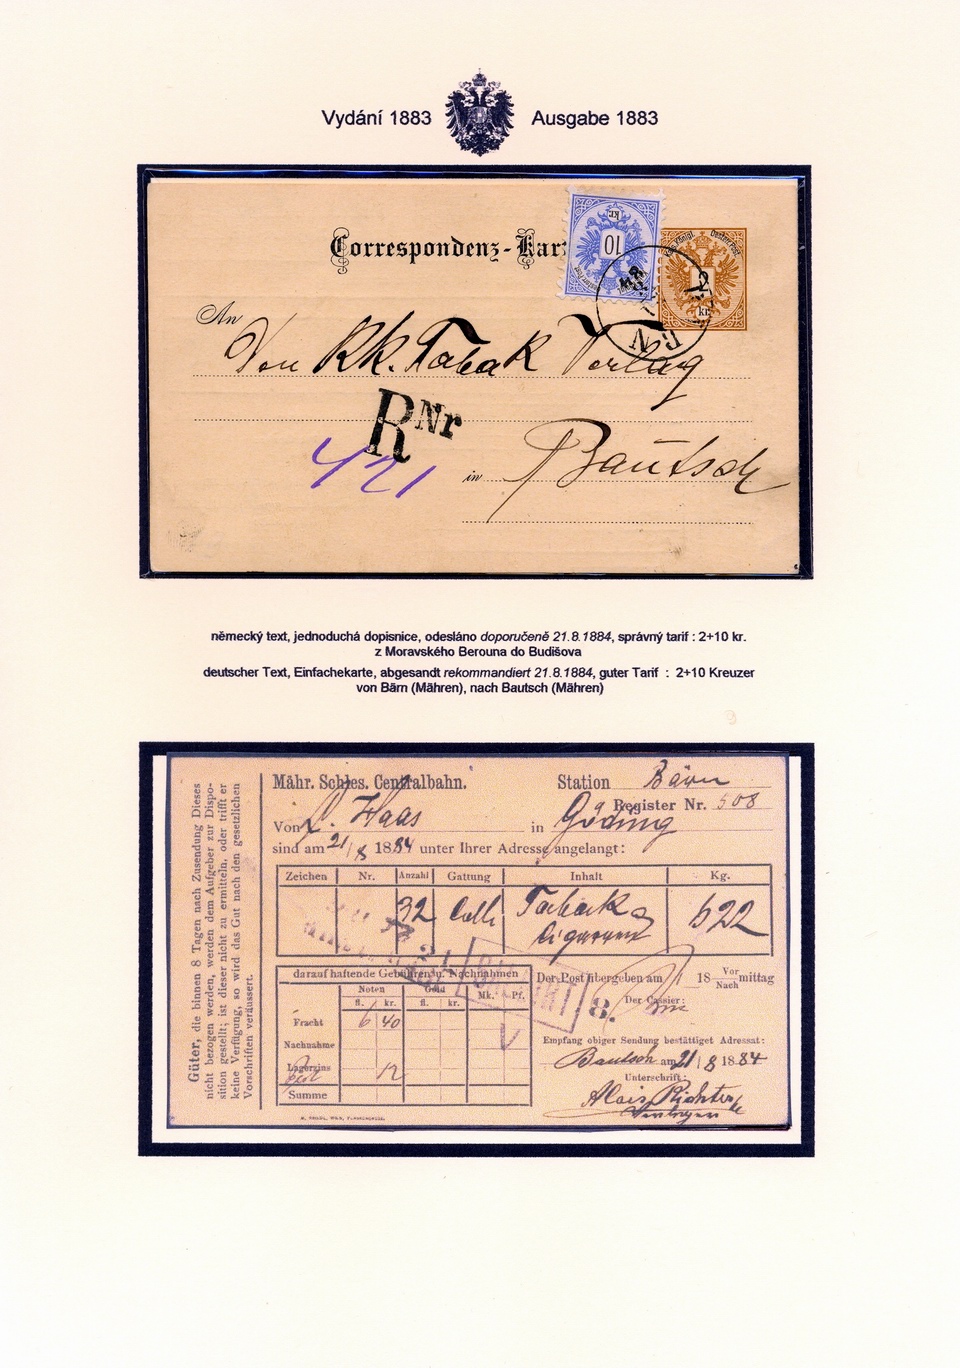 Vydání 1883 Ausgabe 1883
Correspondenz-Kar
10
kr.
2
kr.
An
Von KK. Tabak Verlag
R Nr
421
in Bautsch
německý text, jednoduchá dopisnice, odesláno doporučeně 21.8.1884, správný tarif : 2+10 kr.
z Moravského Berouna do Budišova
deutscher Text, Einfachekarte, abgesandt rekommandiert 21.8.1884, guter Tarif : 2+10 Kreuzer
von Bärn (Mähren), nach Bautsch (Mähren)
Güter, die binnen 8 Tagen nach Zusendung Dieses
nicht bezogen werden, werden dem Aufgeber zur Dispo-
sition gestellt; ist dieser nicht zu ermitteln, oder trifft er
keine Verfügung, so wird das Gut nach den gesetzlichen
Vorschriften veräussert.
Mähr. Schles. Centralbahn. Station Bärn
Register Nr. 508
Von L. Haas in Göding
sind am 21/8 1884 unter Ihrer Adresse angelangt:
Zeichen Nr. Anzahl Gattung Inhalt Kg.
32 Colli Taback 622
Cigarren
darauf haftende Gebühren u. Nachnahmen
Noten Gold Mk. Pf.
fl. kr. fl. kr.
Fracht 6 40
Nachnahme
Lagerzins 12
Summe
Der Post übergeben am 18 Vor Nach mittag
Der Cassier:
Empfang obiger Sendung bestättiget Adressat:
Bautsch am 21/8 1884
Unterschrift:
Alois Richter